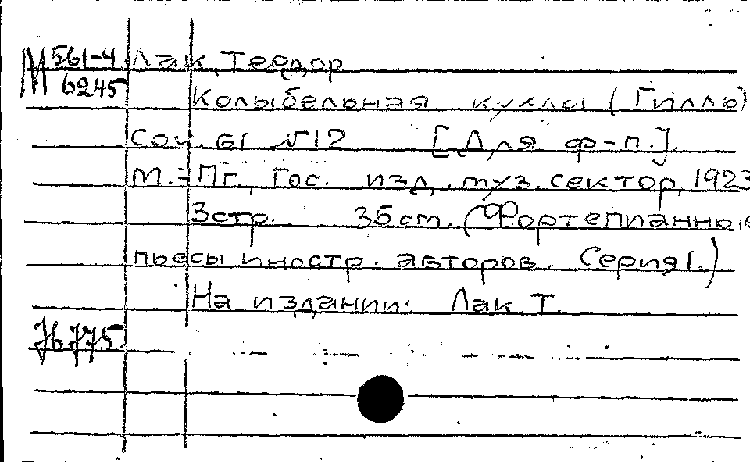 М 561-4 Лак, Теодор
6245
Колыбельная куклы (Гилло)
Соч. 61 №12 [Для ф-п.]
М.-Пг., Гос. изд. муз. сектор, 1923
3 стр. 35 см. (Фортепианные
пьесы иностр. авторов. Серия I.)
На издании: Лак Т.